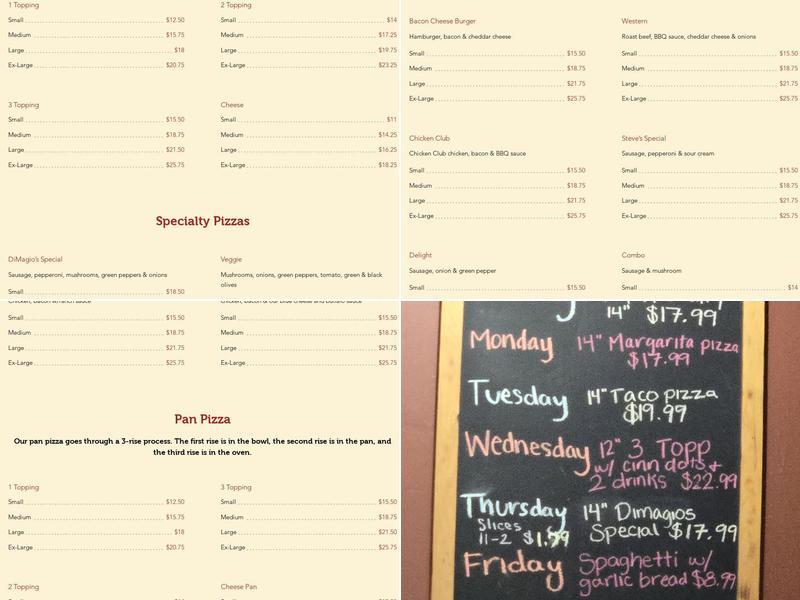 1 Topping
Small $12.50
Medium $15.75
Large $18
Ex-Large $20.75
2 Topping
Small $14
Medium $17.25
Large $19.75
Ex-Large $23.25
3 Topping
Small $15.50
Medium $18.75
Large $21.50
Ex-Large $25.75
Cheese
Small $11
Medium $14.25
Large $16.25
Ex-Large $18.25
Specialty Pizzas
DiMagio's Special
Sausage, pepperoni, mushrooms, green peppers & onions
Small $18.50
Veggie
Mushrooms, onions, green peppers, tomato, green & black
olives
Bacon Cheese Burger
Hamburger, bacon & cheddar cheese
Small $15.50
Medium $18.75
Large $21.75
Ex-Large $25.75
Western
Roast beef, BBQ sauce, cheddar cheese & onions
Small $15.50
Medium $18.75
Large $21.75
Ex-Large $25.75
Chicken Club
Chicken Club chicken, bacon & BBQ sauce
Small $15.50
Medium $18.75
Large $21.75
Ex-Large $25.75
Steve's Special
Sausage, pepperoni & sour cream
Small $15.50
Medium $18.75
Large $21.75
Ex-Large $25.75
Delight
Sausage, onion & green pepper
Small $15.50
Combo
Sausage & mushroom
Small $14
Small $15.50
Medium $18.75
Large $21.75
Ex-Large $25.75
Small $15.50
Medium $18.75
Large $21.75
Ex-Large $25.75
Pan Pizza
Our pan pizza goes through a 3-rise process. The first rise is in the bowl, the second rise is in the pan, and
the third rise is in the oven.
1 Topping
Small $12.50
Medium $15.75
Large $18
Ex-Large $20.75
3 Topping
Small $15.50
Medium $18.75
Large $21.50
Ex-Large $25.75
2 Topping
Cheese Pan
14" $17.99
Monday 14" Margarita pizza
$17.99
Tuesday 14" Taco pizza
$19.99
Wednesday 12" 3 Topp
w/ cinn dots +
2 drinks $22.99
Thursday 14" Dimagios
Slices Special $17.99
11-2 $1.99
Friday Spaghetti w/
garlic bread $8.99